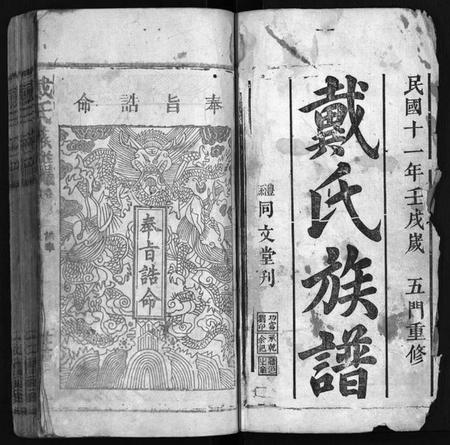 民國十一年壬戌歲 五門重修
戴氏族譜
同文堂刊
奉旨誥命
奉旨誥命
戴氏族譜